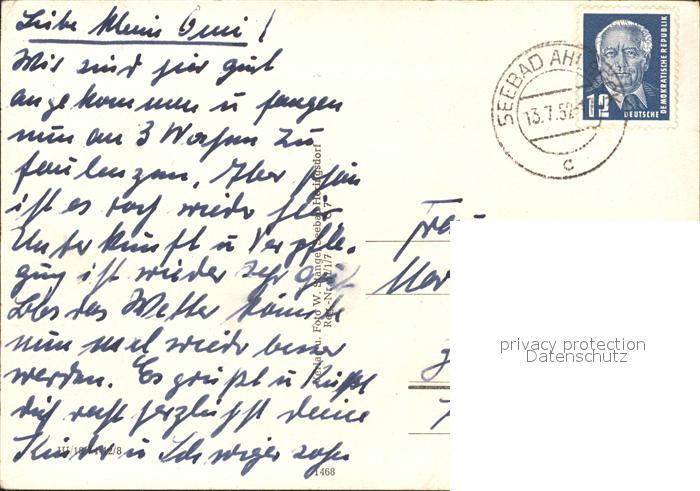 Liebe kleine Omi!
Wir sind hier gut
angekommen u fangen
nun an 3 Wochen zu
faulenzen. Aber schön
ist es doch wieder hier
Unterkunft u Verpfle-
gung ist wieder sehr gut
Blos das Wetter könnte
nun mal wieder besser
werden. Es grüßt u küßt
dich recht herzlichst deine
Kinder u Schwiegersohn
SEEBAD AH
13.7.52
c
12
DEUTSCHE
DEMOKRATISCHE REPUBLIK
Verlag u. Foto W. Stanger, Seebad Heringsdorf
Frau
Mar
privacy protection
Datenschutz
1468